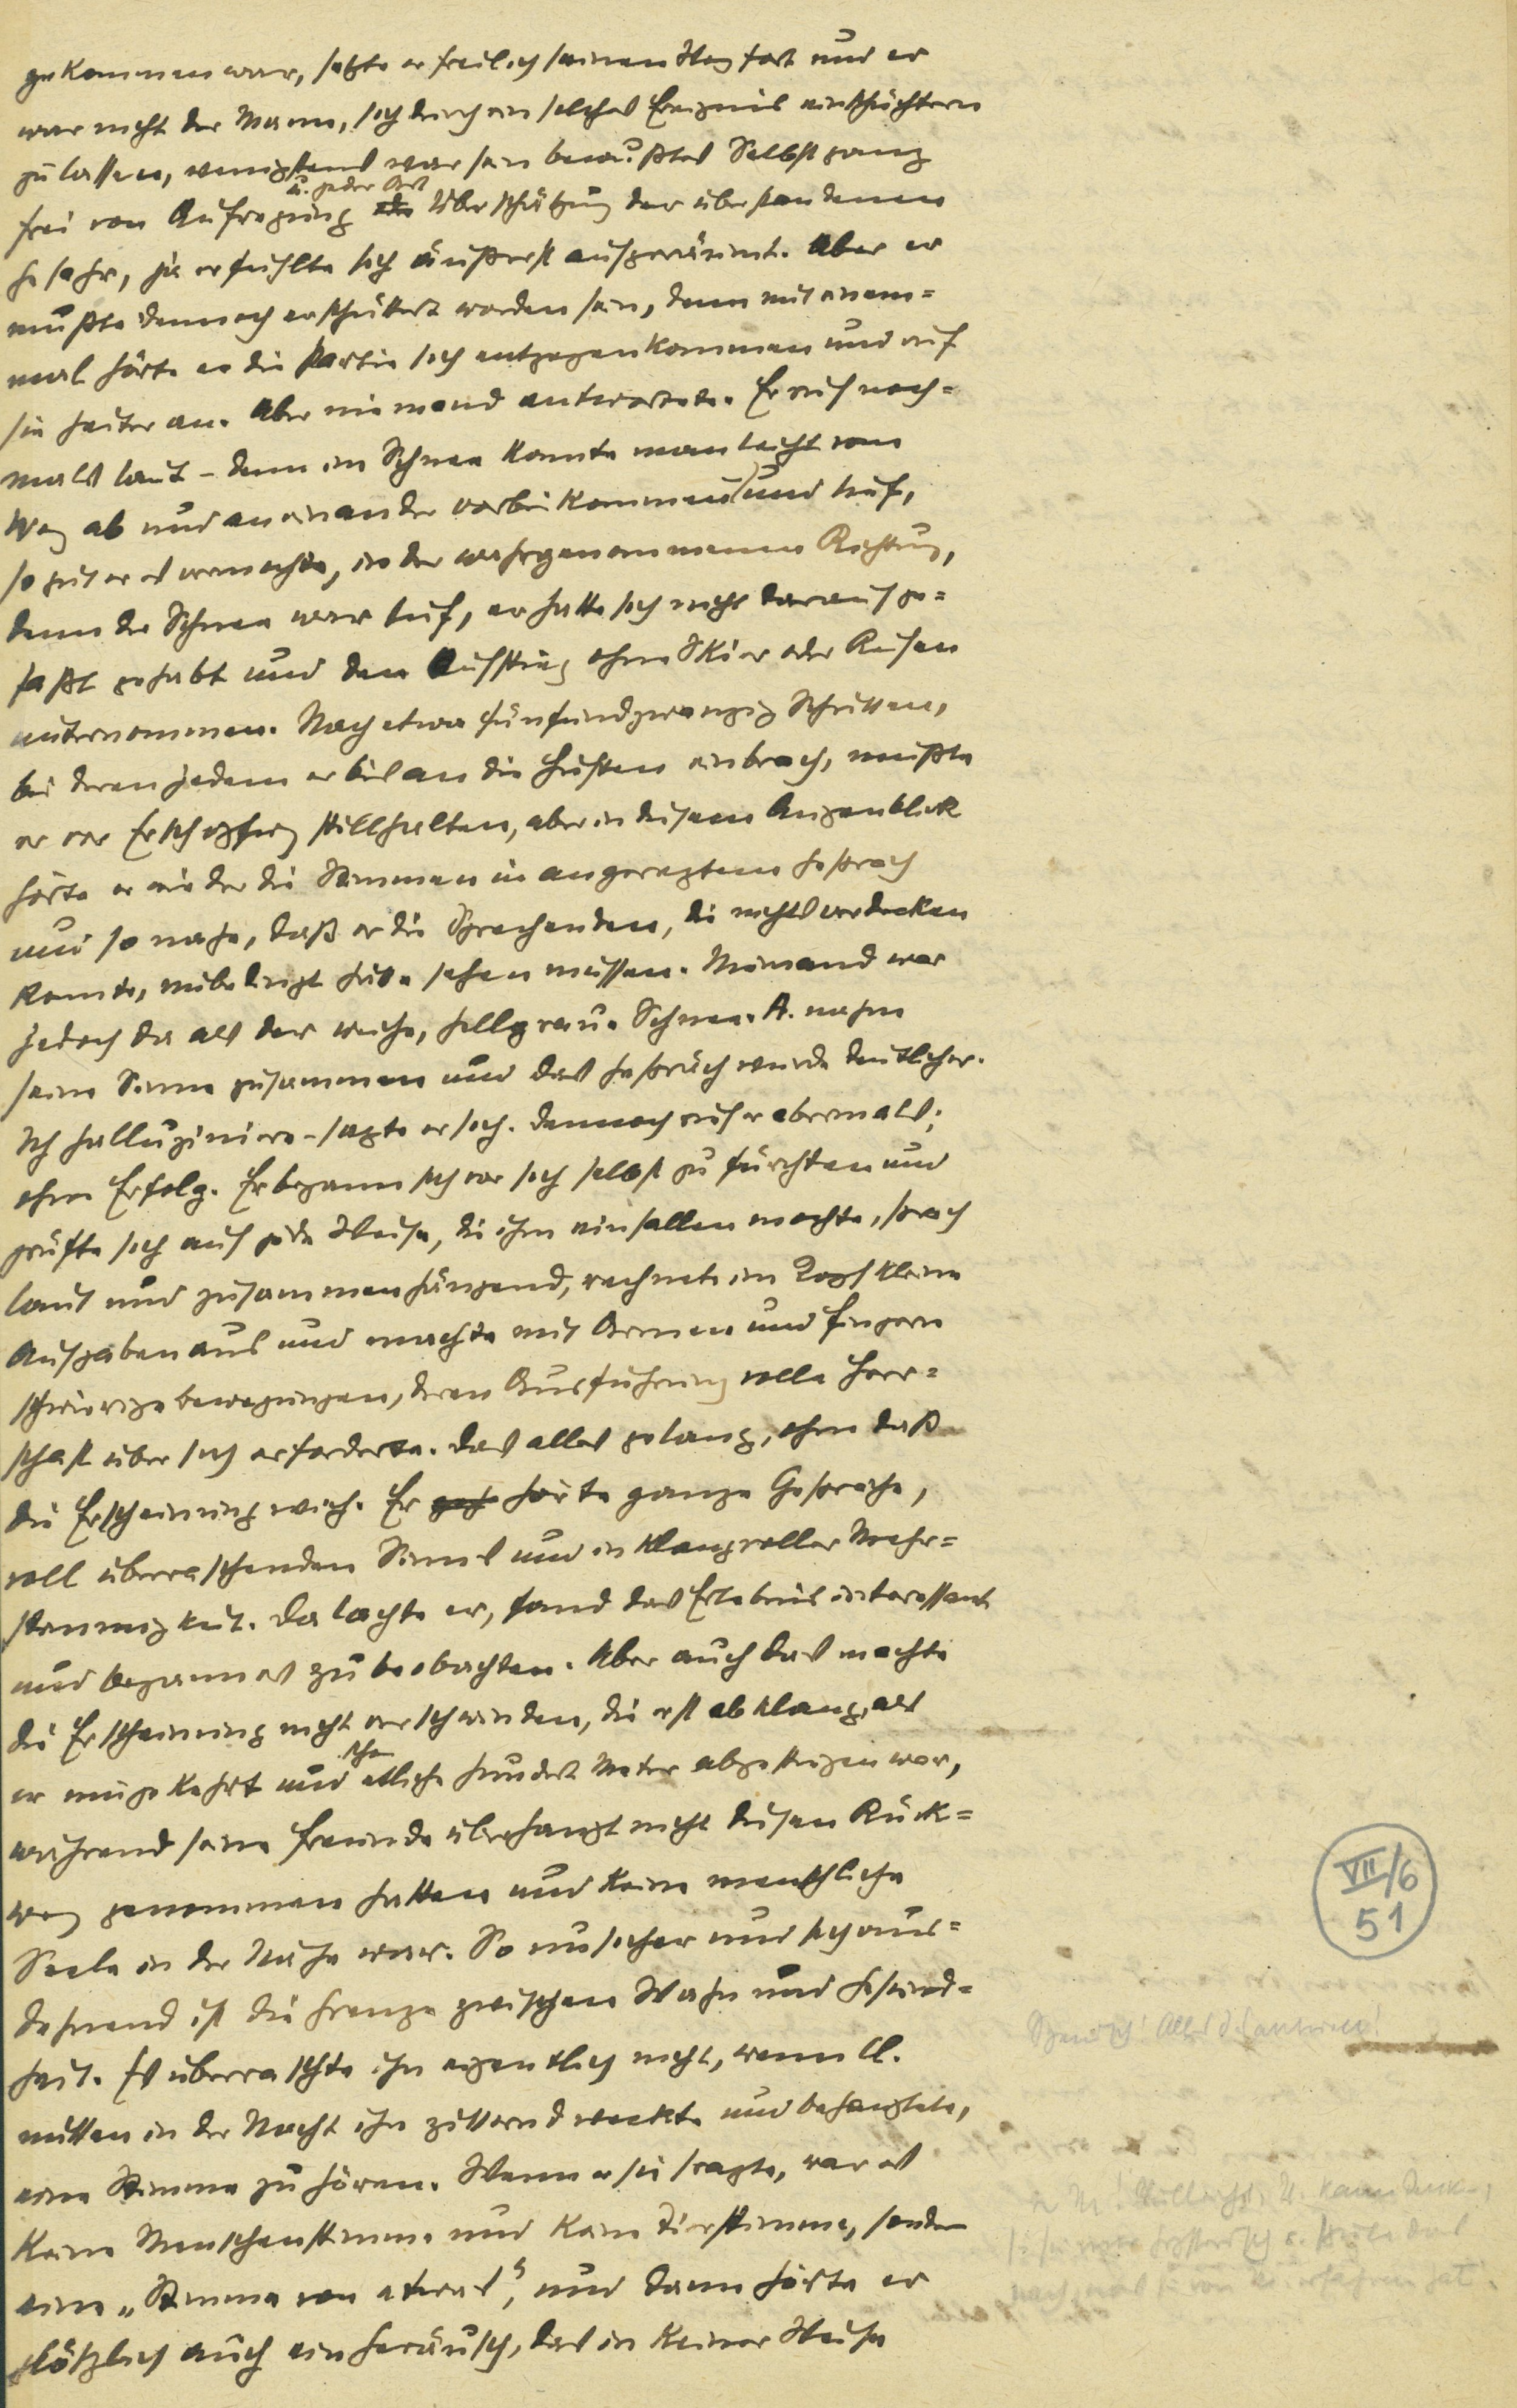 gekommen war, setzte er freilich seinen Weg fort und er
war nicht der Mann, sich durch ein solches Ereignis einschüchtern
zu lassen, wenigstens war sein bewußtes Selbst ganz
frei von Aufregung oder u. jeder Art Überschätzung der überstandenen
Gefahr, ja er fühlte sich äußerst aufgeräumt. Aber er
mußte dennoch erschüttert worden sein, denn mit einem=
mal hörte er die Partie sich entgegenkommen und rief
sie heiter an. Aber niemand antwortete. Er rief noch=
mals laut – denn im Schnee konnte man leicht vom
Weg ab und aneinander vorbei kommen und lief,
so gut er es vermochte, in der wahrgenommenen Richtung,
denn der Schnee war tief, er hatte sich nicht darauf ge=
faßt gehabt und den Aufstieg ohne Skier oder Reifen
unternommen. Nach etwa fünfundzwanzig Schritten,
bei deren jedem er bis an die Hüften einbrach, mußte
er vor Erschöpfung stillhalten, aber in diesem Augenblick
hörte er wieder die Stimmen in angeregtem Gespräch
und so nahe, daß er die Sprechenden, die nichts verdecken
konnte, unbedingt hätte sehen müssen. Niemand war
jedoch da als der weiche, hellgraue Schnee. A. nahm
seine Sinne zusammen und das Gespräch wurde deutlicher.
Ich halluziniere – sagte er sich. Dennoch rief er abermals;
ohne Erfolg. Er begann sich vor sich selbst zu fürchten und
prüfte sich auf jede Weise, die ihm einfallen mochte, sprach
laut und zusammenhängend, rechnete im Kopf kleine
Aufgaben aus und machte mit Armen und Fingern
schwierige Bewegungen, deren Ausführung volle Herr=
schaft über sich erforderte. Das alles gelang, ohne daß
die Erscheinung wich. Er hörte ganze Gespräche,
voll überraschenden Sinns und in klangvoller Mehr=
stimmigkeit. Da lachte er, fand das Erlebnis interessant
und begann es zu beobachten. Aber auch das machte
die Erscheinung nicht verschwinden, die erst abklang, als
er umgekehrt und schon etliche hundert Meter abgestiegen war,
während seine Freunde überhaupt nicht diesen Rück=
weg genommen hatten und keine menschliche
Seele in der Nähe war. So unsicher und sich aus=
dehnend ist die Grenze zwischen Wahn und Gesund=
heit. Es überraschte ihn eigentlich nicht, wenn Cl.
mitten in der Nacht ihn zitternd weckte und behauptete,
eine Stimme zu hören. Wenn er sie fragte, war es
keine Menschenstimme und keine Tierstimme, sondern
eine „Stimme von etwas“, und dann hörte er
plötzlich auch ein Geräusch, das in keiner Weise
VII/6
51